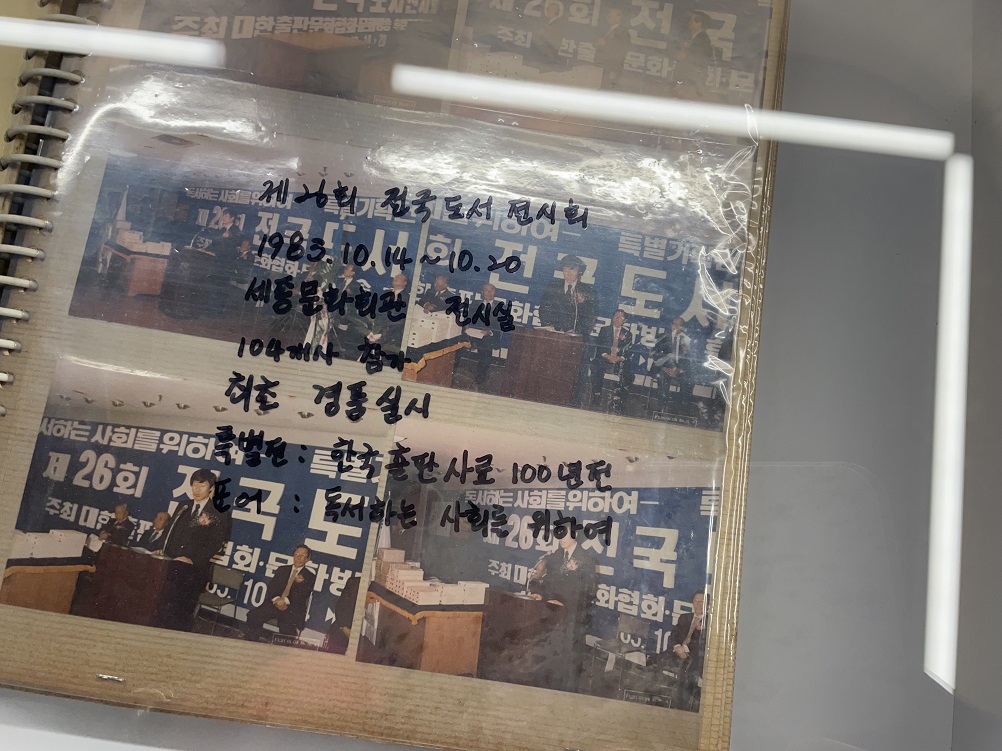 전국도서전시
주최 대한출판문화협회·문
제26회 전국
주최 대한출 문화협회·문
제26회 전국도서전시회
1983.10.14~10.20
세종문화회관 전시실
104개사 참가
최초 경품실시
특별전: 한국출판사료 100년전
표어: 독서하는 사회를 위하여
독서하는 사회를 위
제26회
위하여
특별기
전국도서
서하는 사회를 위하여
제26회 전국도
주최 대한
협회·문화방
83.10
독서하는 사회를 위하여
특
제26회 전국
주최 대한
화협회·문
83.10